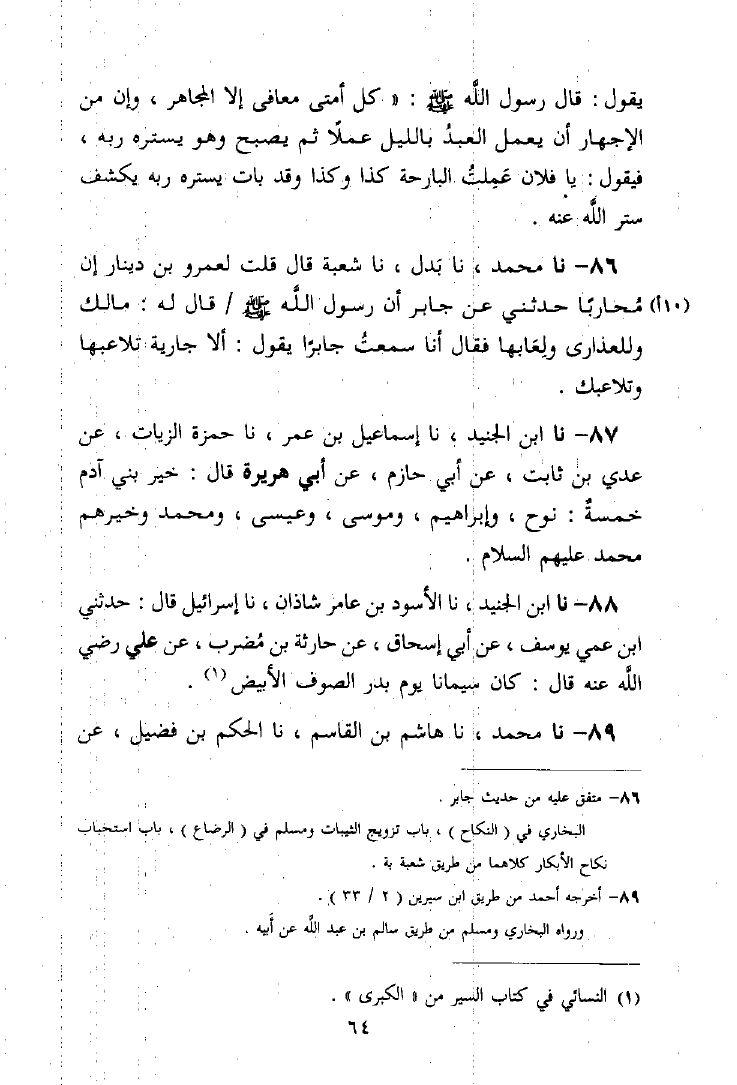 يقول : قال رسول اللَّه ﷺ : « كل أمتى معافى إلا المجاهر ، وإن من
الإجهار أن يعمل العبدُ بالليل عملًا ثم يصبح وهو يستره ربه ،
فيقول : يا فلان عَمِلتُ البارحة كذا وكذا وقد بات يستره ربه يكشف
ستر اللَّه عنه .
٨٦- نا محمد ، نا بَدل ، نا شعبة قال قلت لعمرو بن دينار إن
(١٠أ) مُحاربًا حدثني عن جابر أن رسول اللَّه ﷺ / قال له : مالك
وللعذارى ولِعَابها فقال أنا سمعتُ جابرًا يقول : ألا جارية تلاعبها
وتلاعبك .
٨٧- نا ابن الجنيد ، نا إسماعيل بن عمر ، نا حمزة الزيات ، عن
عدي بن ثابت ، عن أبي حازم ، عن أبي هريرة قال : خير بني آدم
خمسةٌ : نوح ، وإبراهيم ، وموسى ، وعيسى ، ومحمد وخيرهم
محمد عليهم السلام .
٨٨- نا ابن الجنيد ، نا الأسود بن عامر شاذان ، نا إسرائيل قال : حدثني
ابن عمي يوسف ، عن أبي إسحاق ، عن حارثة بن مُضرب ، عن علي رضي
اللَّه عنه قال : كان سيمانا يوم بدر الصوف الأبيض (١) .
٨٩- نا محمد ، نا هاشم بن القاسم ، نا الحكم بن فضيل ، عن
٨٦- متفق عليه من حديث جابر .
البخاري في ( النكاح ) ، باب تزويج الثيبات ومسلم في ( الرضاع ) ، باب استحباب
نكاح الأبكار كلاهما من طريق شعبة بة .
٨٩- أخرجه أحمد من طريق ابن سيرين ( ٢ / ٣٣ ) .
ورواه البخاري ومسلم من طريق سالم بن عبد اللَّه عن أَبيه .
(١) النسائي في كتاب السير من « الكبرى » .
٦٤